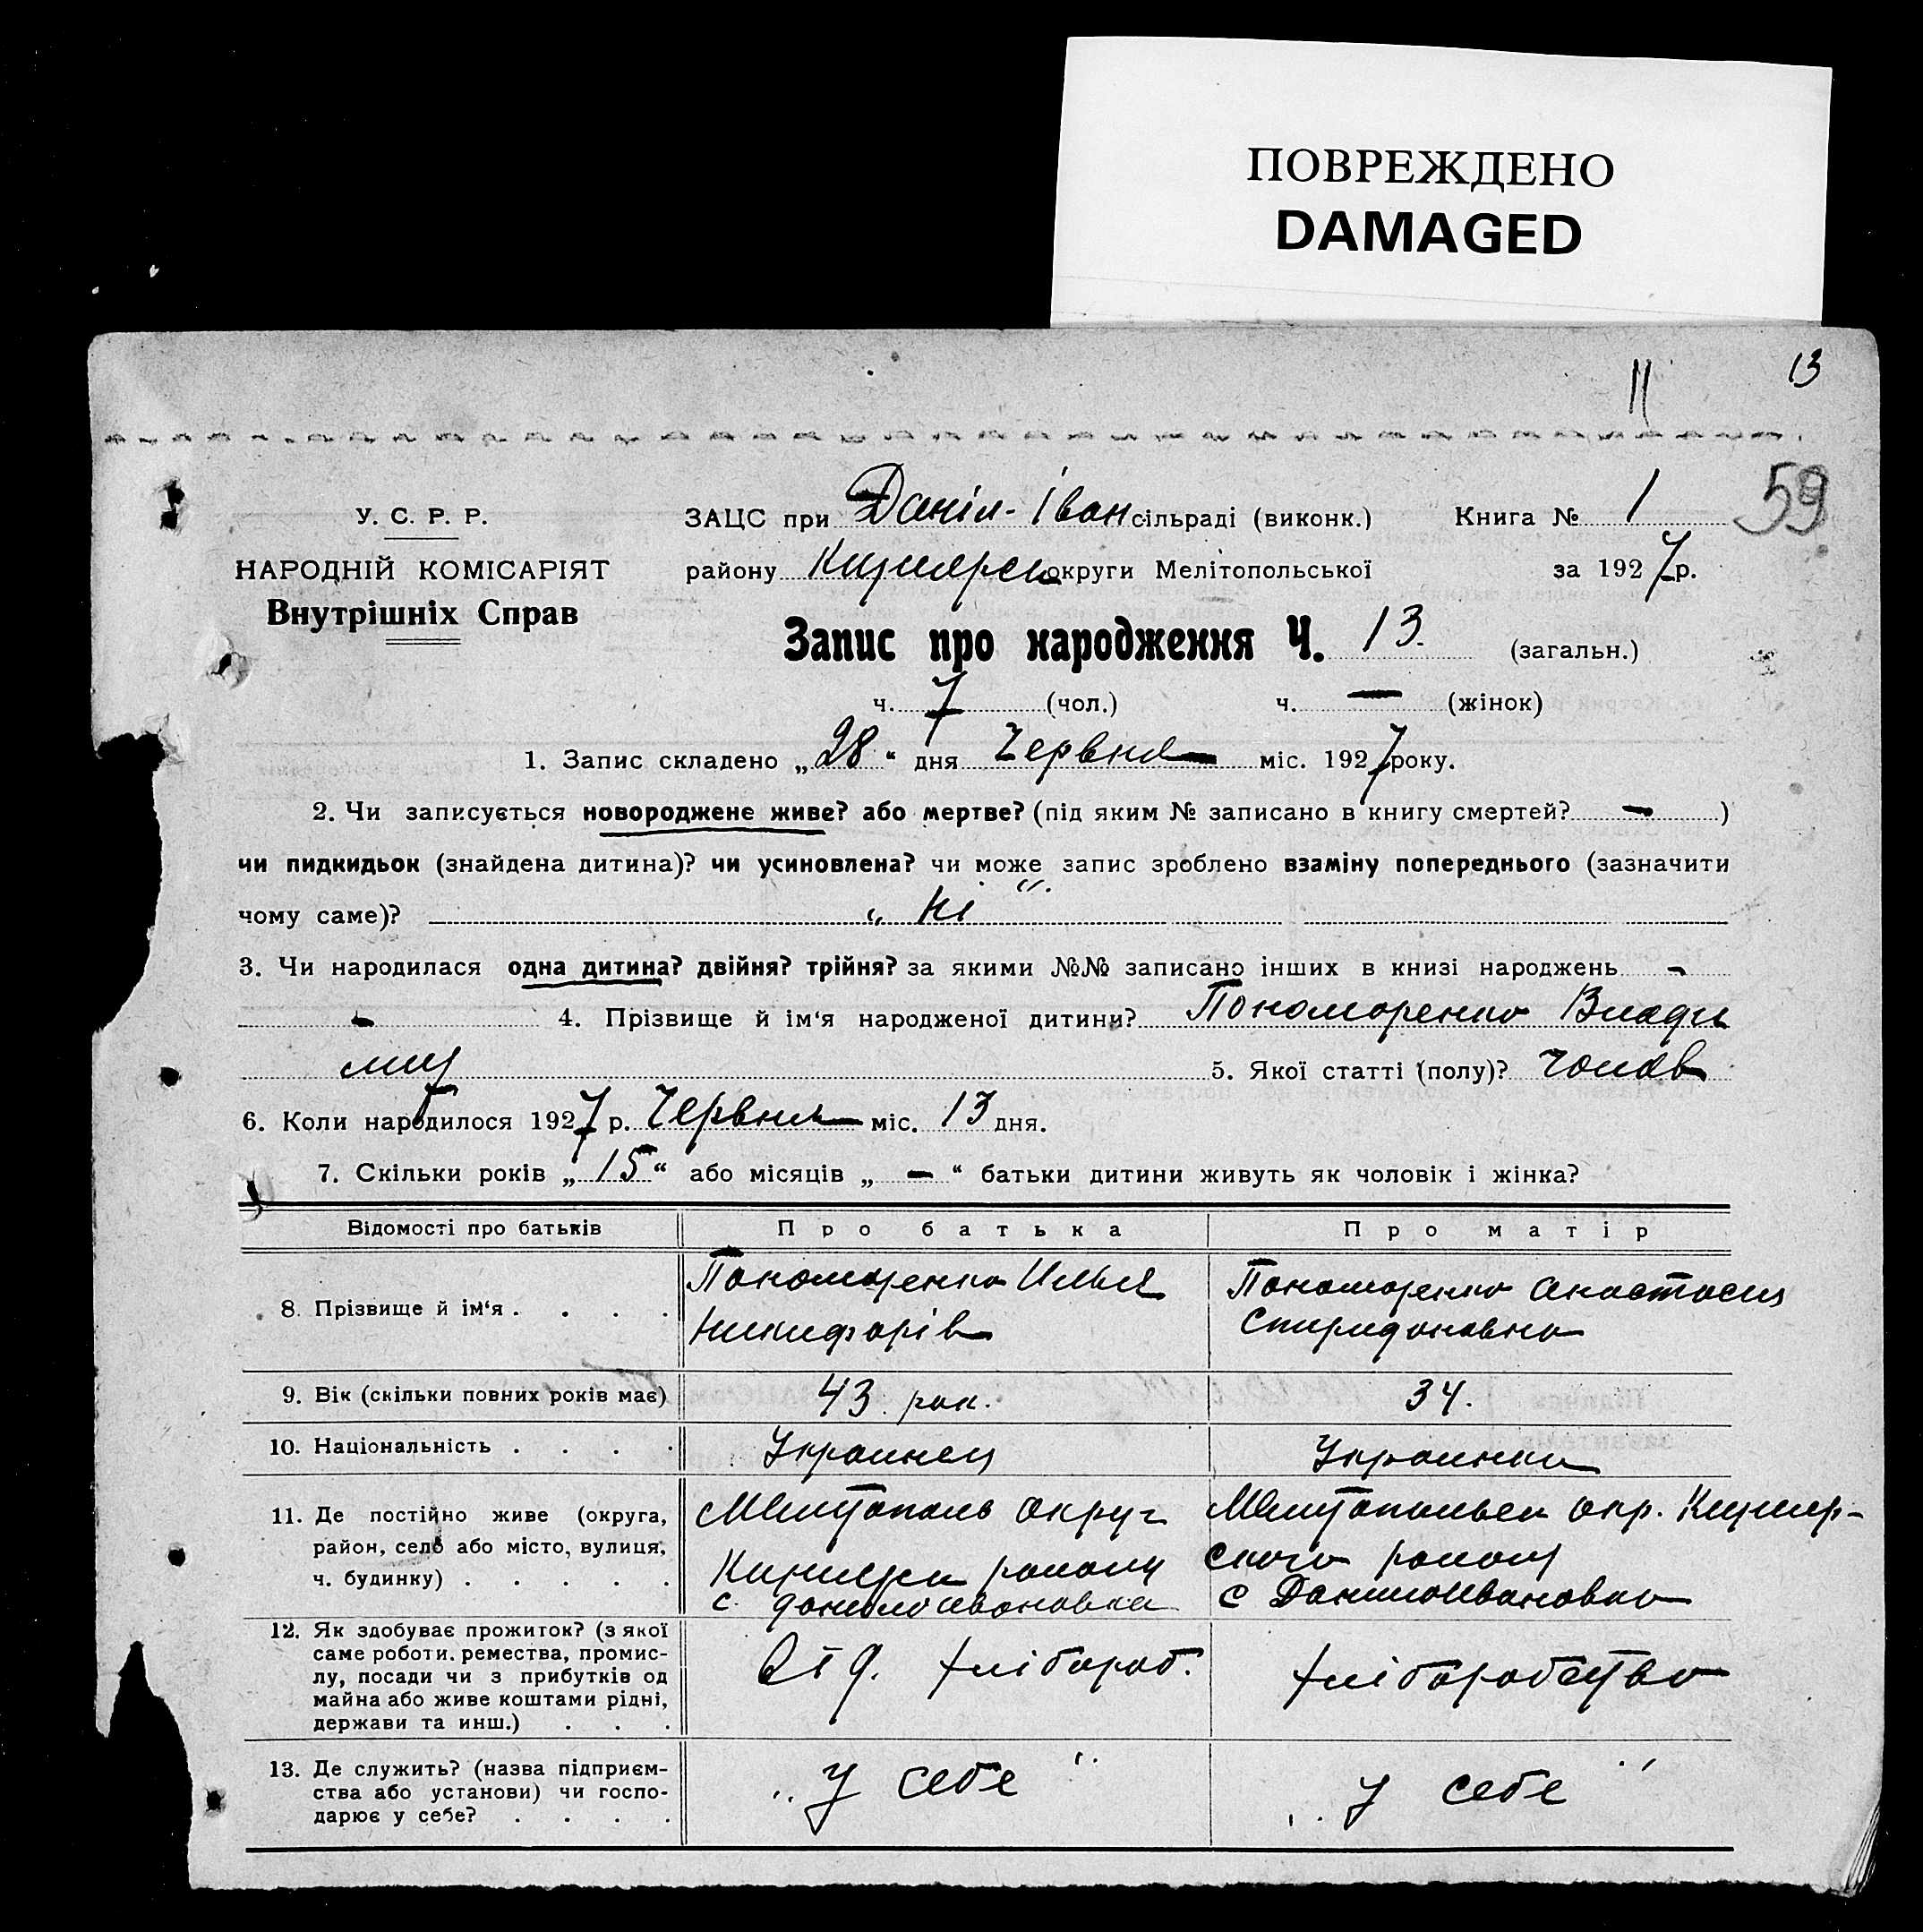 ПОВРЕЖДЕНО
DAMAGED
13
11
59
У. С. Р. Р.
НАРОДНІЙ КОМІСАРІЯТ
Внутрішніх Справ
ЗАЦС при Даніл-Іван сільраді (виконк.) Книга № 1
району Кизиярск округи Мелітопольської за 1927 р.
Запис про народження Ч. 13. (загальн.)
ч. 7 (чол.) ч. — (жінок)
1. Запис складено „28“ дня Червня міс. 1927 року.
2. Чи записується новороджене живе? або мертве? (під яким № записано в книгу смертей? — )
чи пидкидьок (знайдена дитина)? чи усиновлена? чи може запис зроблено взаміну попереднього (зазначити
чому саме)? „ Ні “
3. Чи народилася одна дитина? двійня? трійня? за якими №№ записано інших в книзі народжень —
— 4. Прізвище й ім‘я народженої дитини? Пономаренко Влади
мир 5. Якої статті (полу)? Чолов
6. Коли народилося 1927 р. Червня міс. 13 дня.
7. Скільки років „ 15 “ або місяців „ — “ батьки дитини живуть як чоловік і жінка?
Відомості про батьків Про батька Про матір
8. Прізвище й ім‘я . . . . Пономаренко Илья Никифорів Пономаренко Анастасия Спиридоновна
9. Вік (скільки повних років має) 43 рок. 34.
10. Національність . . . . Украинец Украинка
11. Де постійно живе (округа, Мелітополь округ Мелитопольск окр. Кизияр-
район, село або місто, вулиця, Кизиярск району ского району
ч. будинку) . . . . . с. данилоивановка с Данилоивановка
12. Як здобуває прожиток? (з якої
саме роботи. ремества, промис-
лу, посади чи з прибутків од хлібороб. хліборобство
майна або живе коштами рідні,
держави та инш.) . . .
13. Де служить? (назва підприєм-
ства або установи) чи госпо- „У себе“ „У себе“
дарює у себе? . . . .